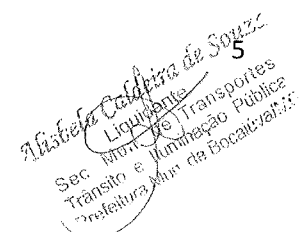 5
Alisbela Caldeira de Souza
Liquidante
Sec Mun. de Transportes
Trânsito e Iluminação Pública
Prefeitura Mun. de Bocaiúva/MG